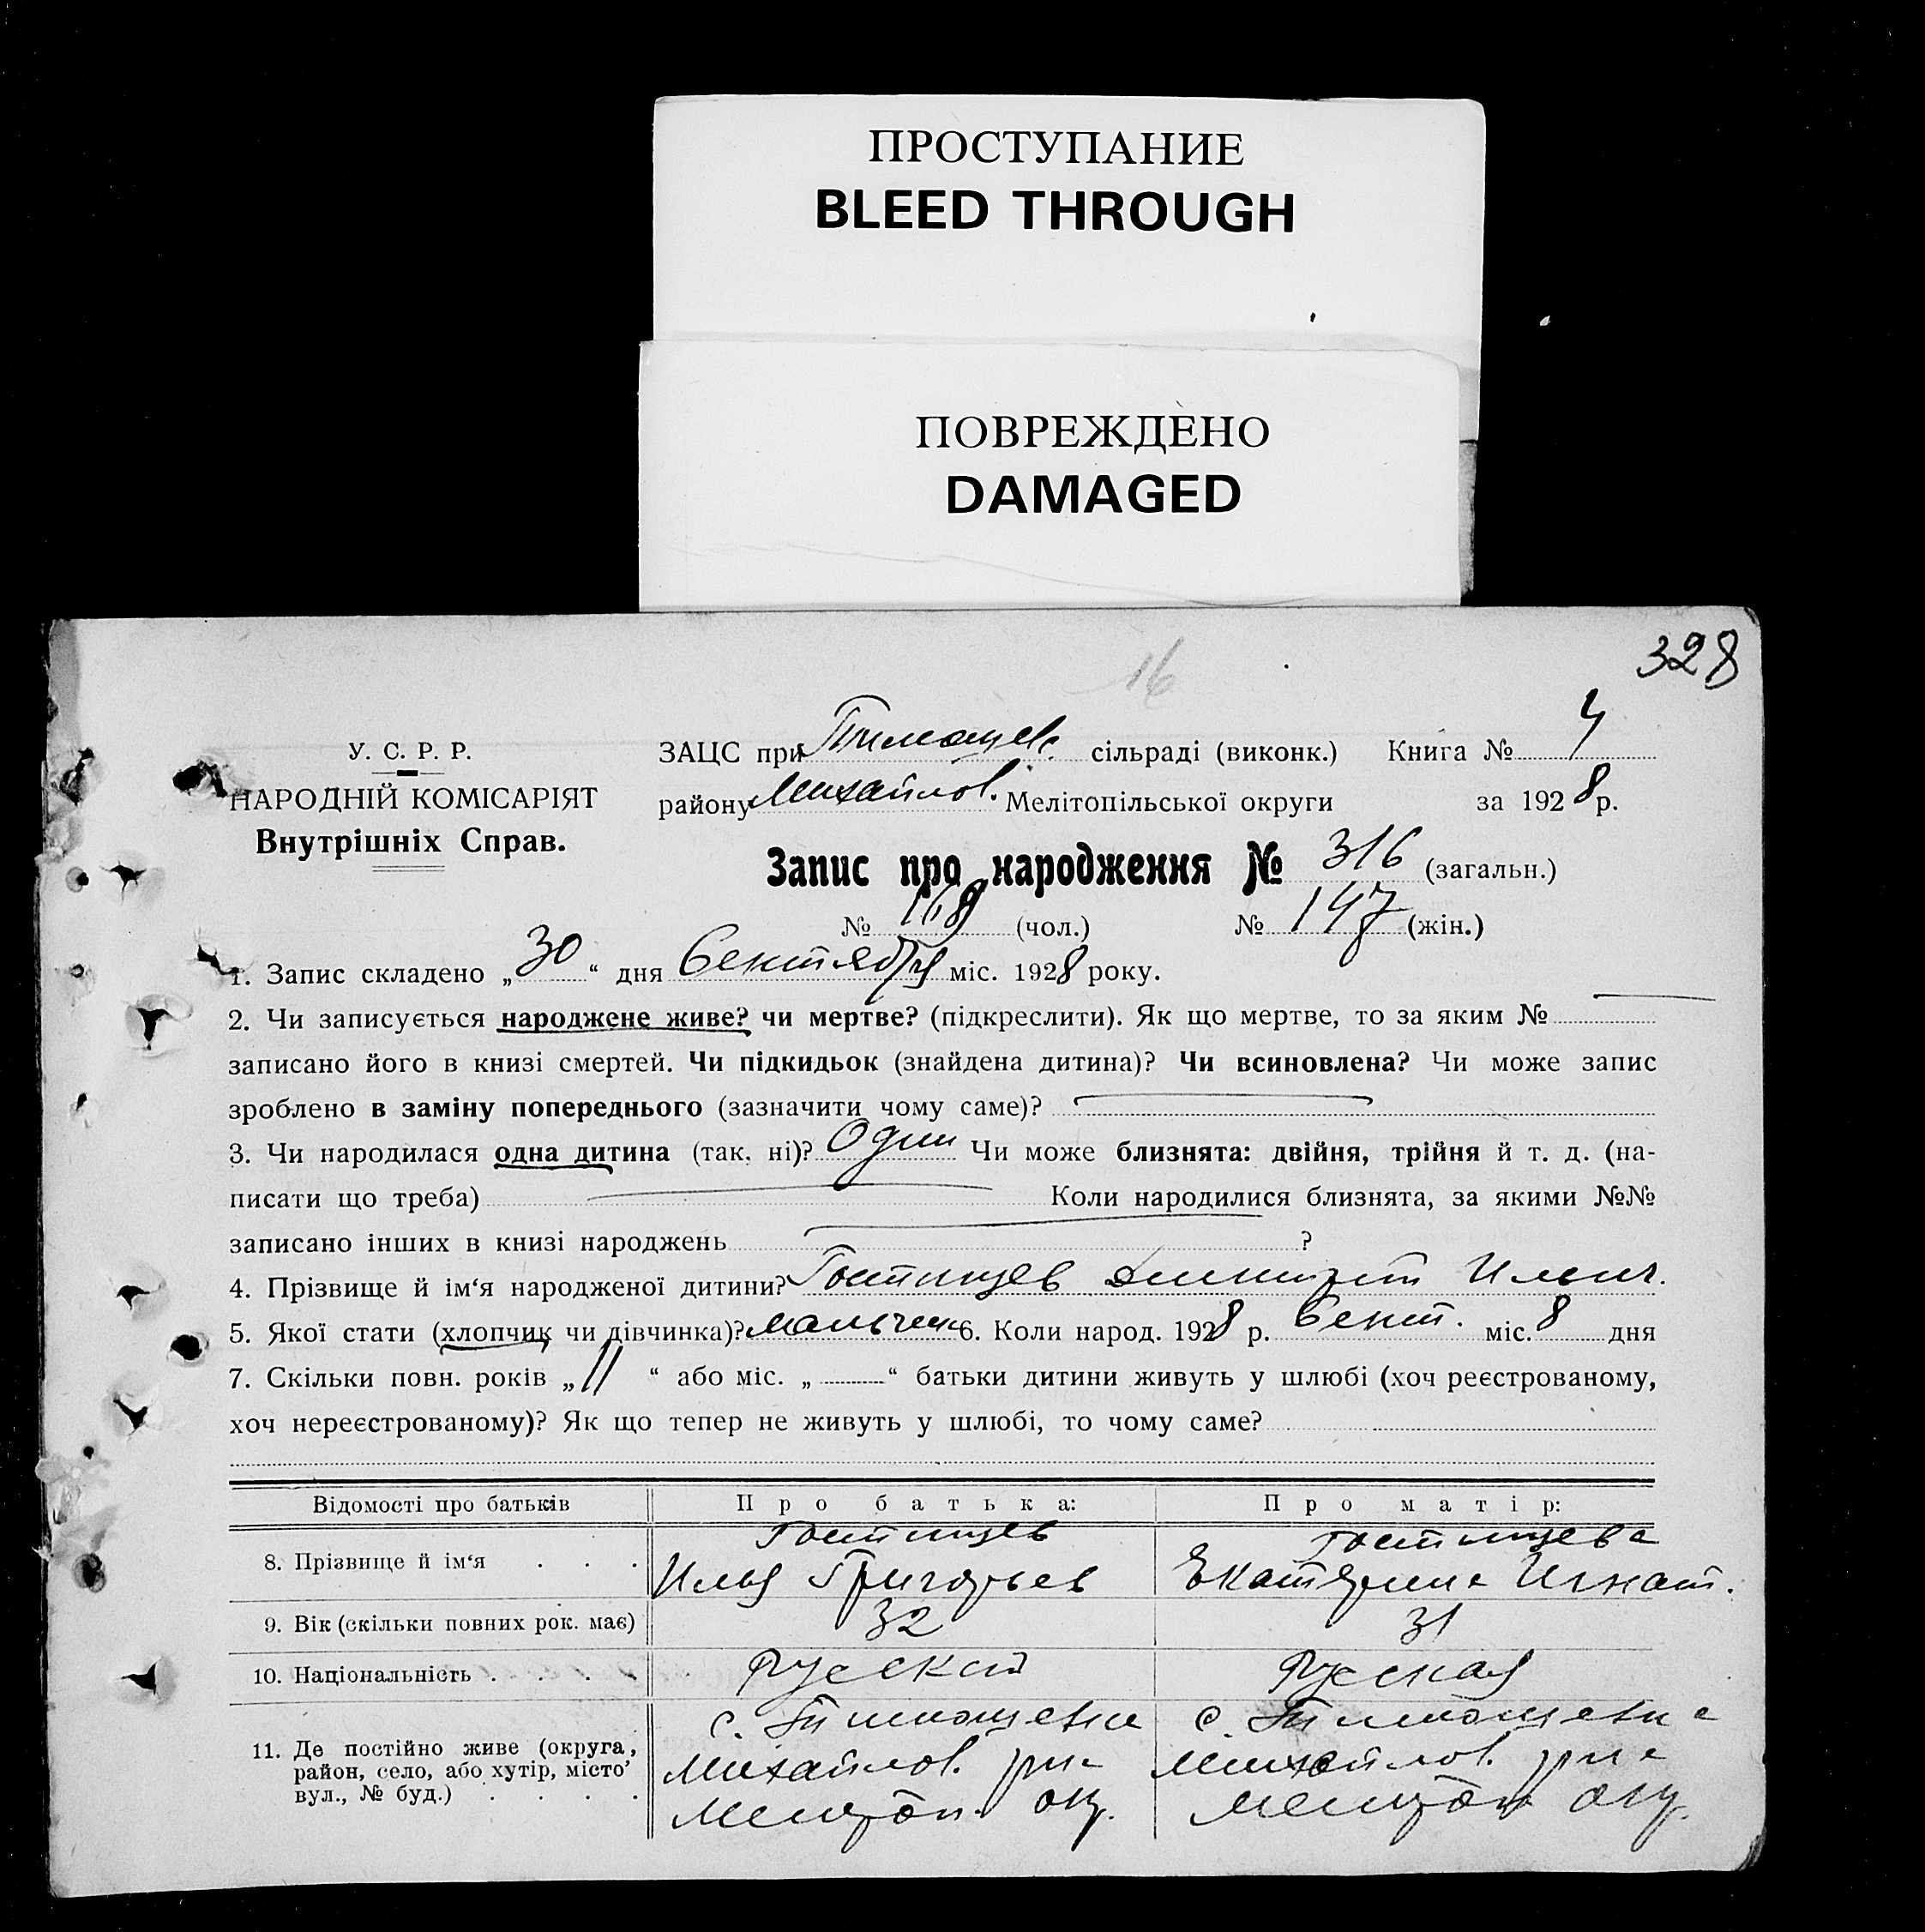 ПРОСТУПАНИЕ
BLEED THROUGH
ПОВРЕЖДЕНО
DAMAGED
328
16
У. С. Р. Р.
НАРОДНІЙ КОМІСАРІЯТ
Внутрішніх Справ.
ЗАЦС при Тимошев. сільраді (виконк.) Книга № 4
району Михайлов. Мелітопільської округи за 1928 р.
Запис про народження № 316 (загальн.)
№ 169 (чол.) № 147 (жін.)
1. Запис складено „30“ дня Сентября міс. 1928 року.
2. Чи записується народжене живе? чи мертве? (підкреслити). Як що мертве, то за яким №
записано його в книзі смертей. Чи підкидьок (знайдена дитина)? Чи всиновлена? Чи може запис
зроблено в заміну попереднього (зазначити чому саме)?
3. Чи народилася одна дитина (так, ні)? Один Чи може близнята: двійня, трійня й т. д. (на-
писати що треба) Коли народилися близнята, за якими №№
записано інших в книзі народжень ?
4. Прізвище й ім‘я народженої дитини? Гостищев Димитрий Ильич.
5. Якої стати (хлопчик чи дівчинка)? мальчик 6. Коли народ. 1928 р. Сент. міс. 8 дня
7. Скільки повн. років „11“ або міс. „ “ батьки дитини живуть у шлюбі (хоч реєстрованому,
хоч нереєстрованому)? Як що тепер не живуть у шлюбі, то чому саме?
Відомості про батьків Про батька: Про матір:
Гостищев Гостищева
8. Прізвище й ім‘я . . . Илья Григорьев Екатерина Игнат.
9. Вік (скільки повних рок. має) 32 31
10. Національність . . . . Русский Русская
с. Тимошевка с. Тимошевка
11. Де постійно живе (округа,
район, село, або хутір, місто’
вул., № буд.) . . . .
Михайлов. р-на Михайлов. р-на
Мелитоп. окр. Мелитоп. окр.